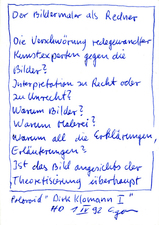 Der Bildermaler als Redner
Die Verschwörung redegewandter
Kunstexperten gegen die
Bilder?
Interpretation zu Recht oder
zu Unrecht?
Warum Bilder?
Warum Malerei?
Warum all die Erklärungen,
Erläuterungen?
Ist das Bild angesichts der
Theoretisierung überhaupt
Polaroid "Dirk Klomann I"
HD 1 IV 92